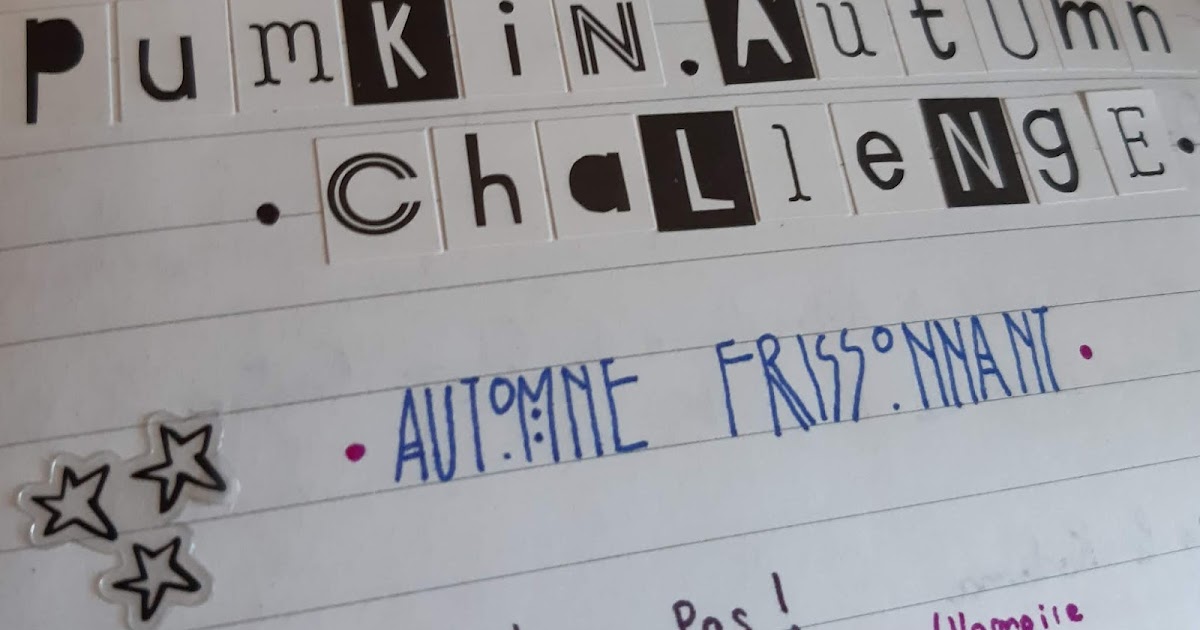 PuMKiN.AutUmn
.ChaLleNgE.
• AUTOMNE FRISSONNANT •
Pas !